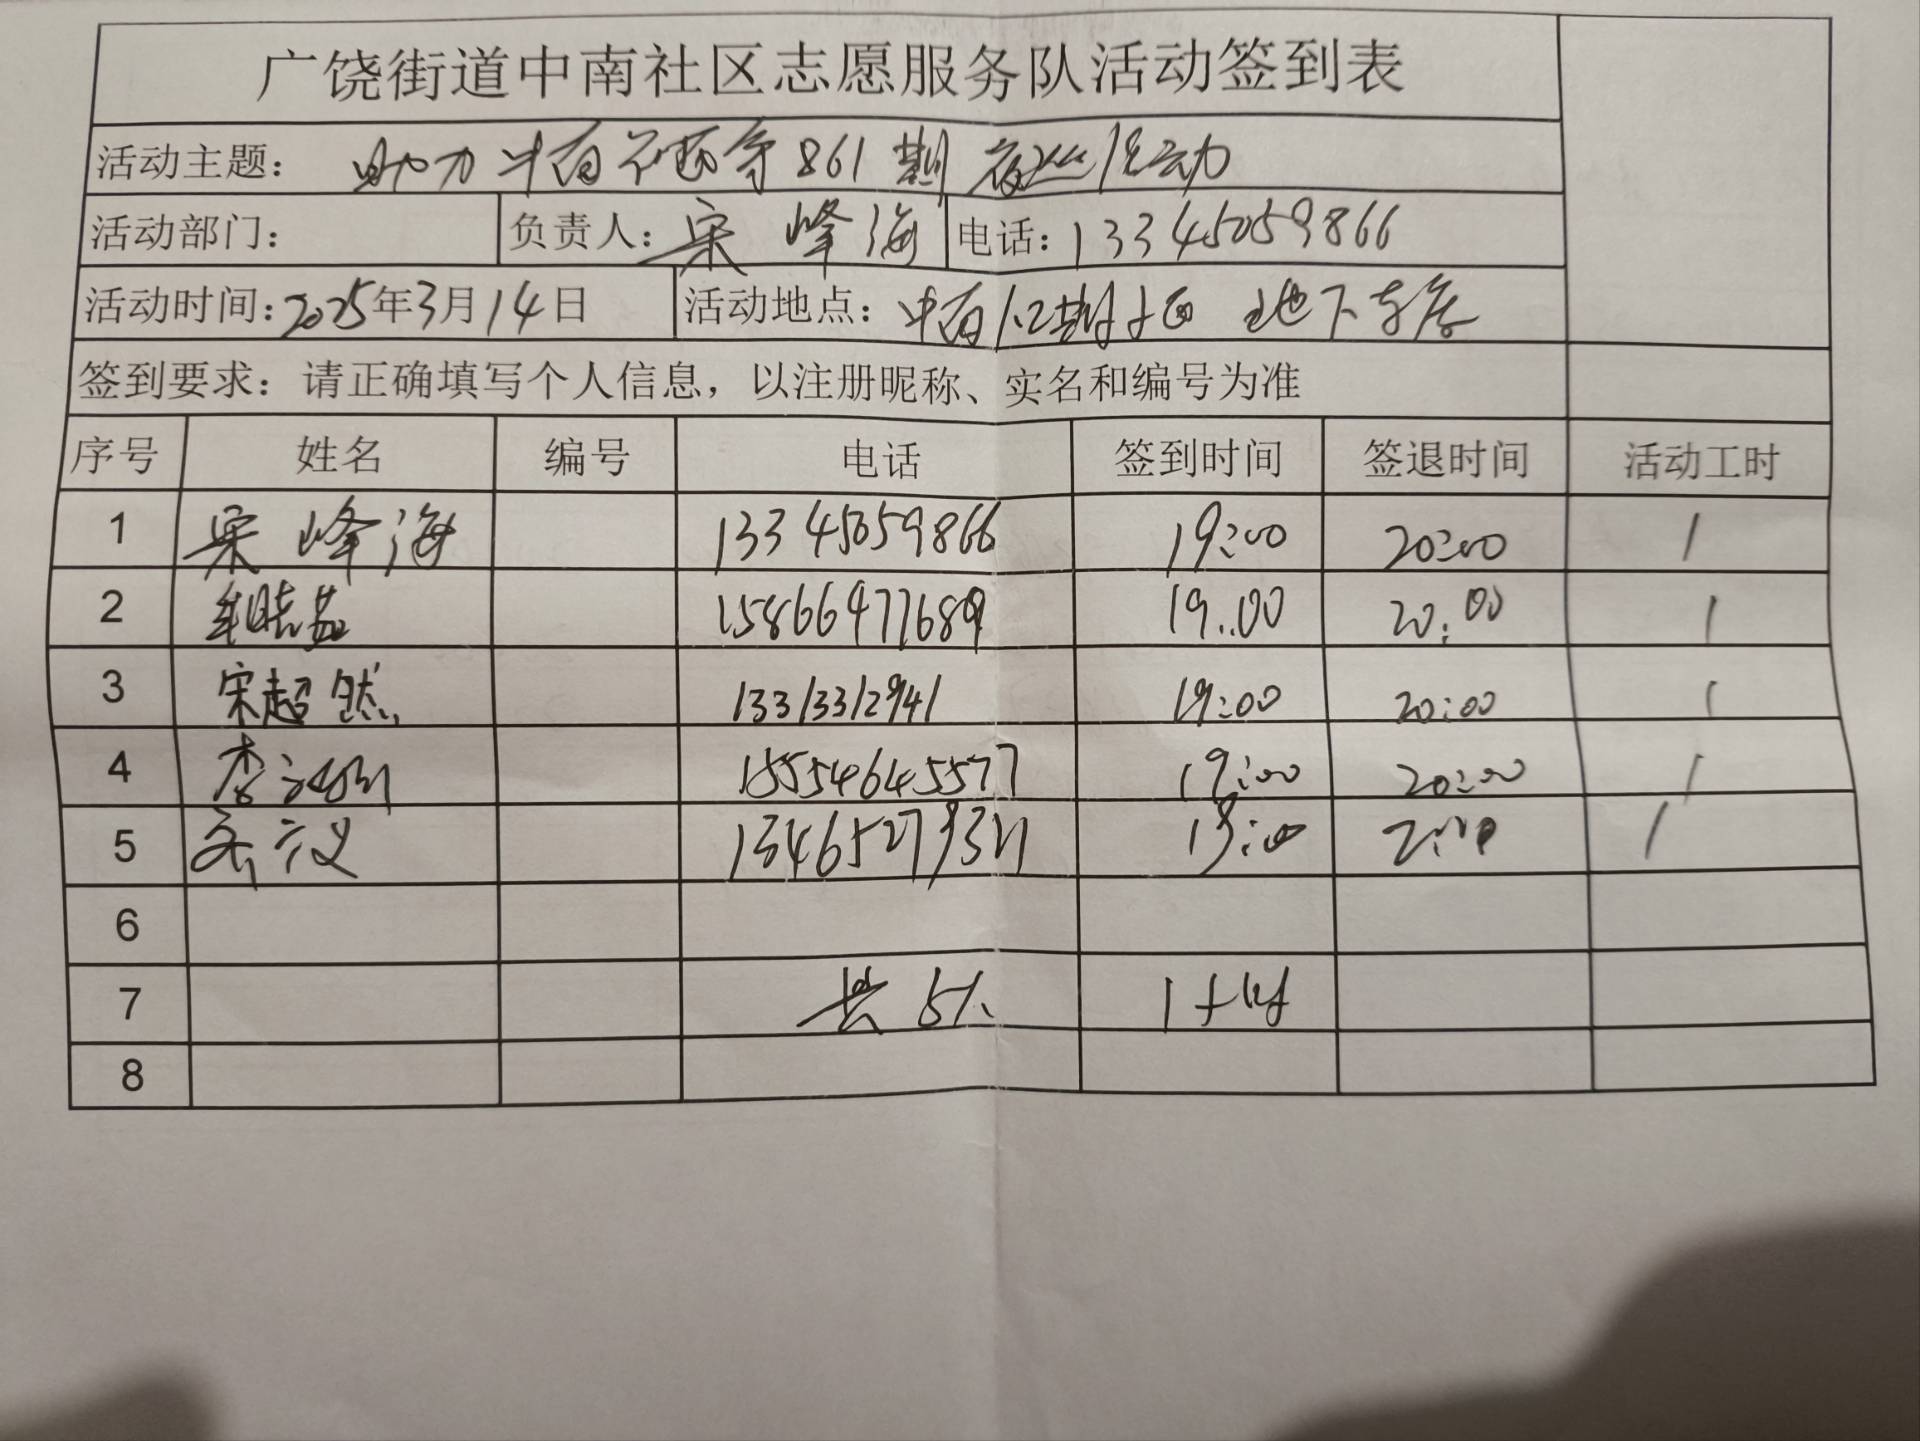 广饶街道中南社区志愿服务队活动签到表
活动主题: 助力中南 861期 夜巡活动
活动部门: 负责人: 宋峰海 电话: 13345059866
活动时间: 2025年3月14日 活动地点: 中南1.2期 地下车库
签到要求: 请正确填写个人信息，以注册昵称、实名和编号为准
序号 姓名 编号 电话 签到时间 签退时间 活动工时
1 宋峰海 13345059866 19:00 20:00 1
2 15866477689 19:00 20:00 1
3 宋超然 13313312941 19:00 20:00 1
4 李 15554645577 19:00 20:00 1
5 19:00 1
6
7 共5人 1小时
8